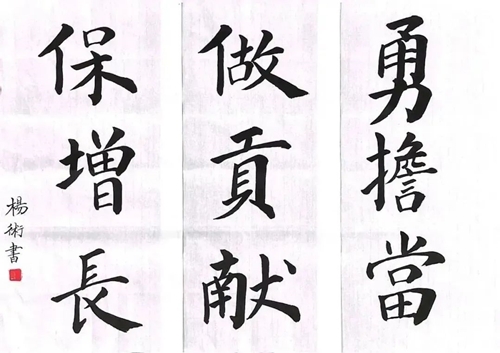 勇擔當
做貢献
保增長
楊術書